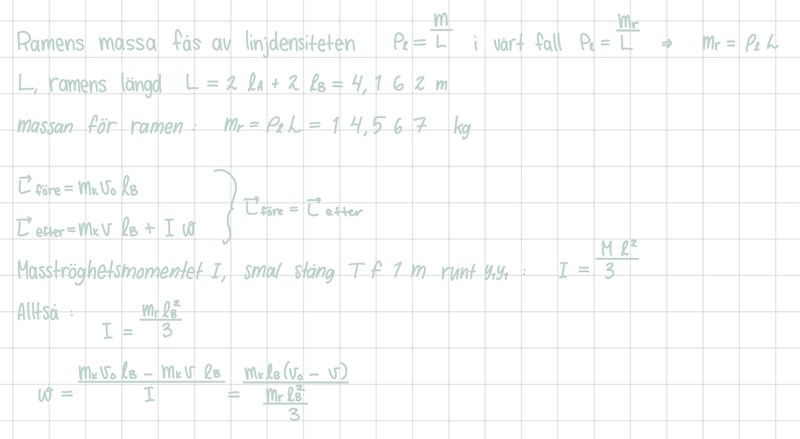 Ramens massa fås av linjdensiteten ρₑ = m/L i vårt fall ρₑ = mᵣ/L ⇒ mᵣ = ρₑ L
L, ramens längd L = 2 ℓ_A + 2 ℓ_B = 4,162 m
massan för ramen : mᵣ = ρₑ L = 14,567 kg
L⃗ före = mₖ v₀ ℓ_B
L⃗ efter = mₖ v ℓ_B + I ω } L⃗ före = L⃗ efter
Masströghetsmomentet I, smal stång T f 1 m runt y₁y₁ : I = M ℓ²/3
Alltså : I = mᵣ ℓ_B²/3
ω = (mₖ v₀ ℓ_B − mₖ v ℓ_B)/I = mₖ ℓ_B (v₀ − v)/(mᵣ ℓ_B²/3)